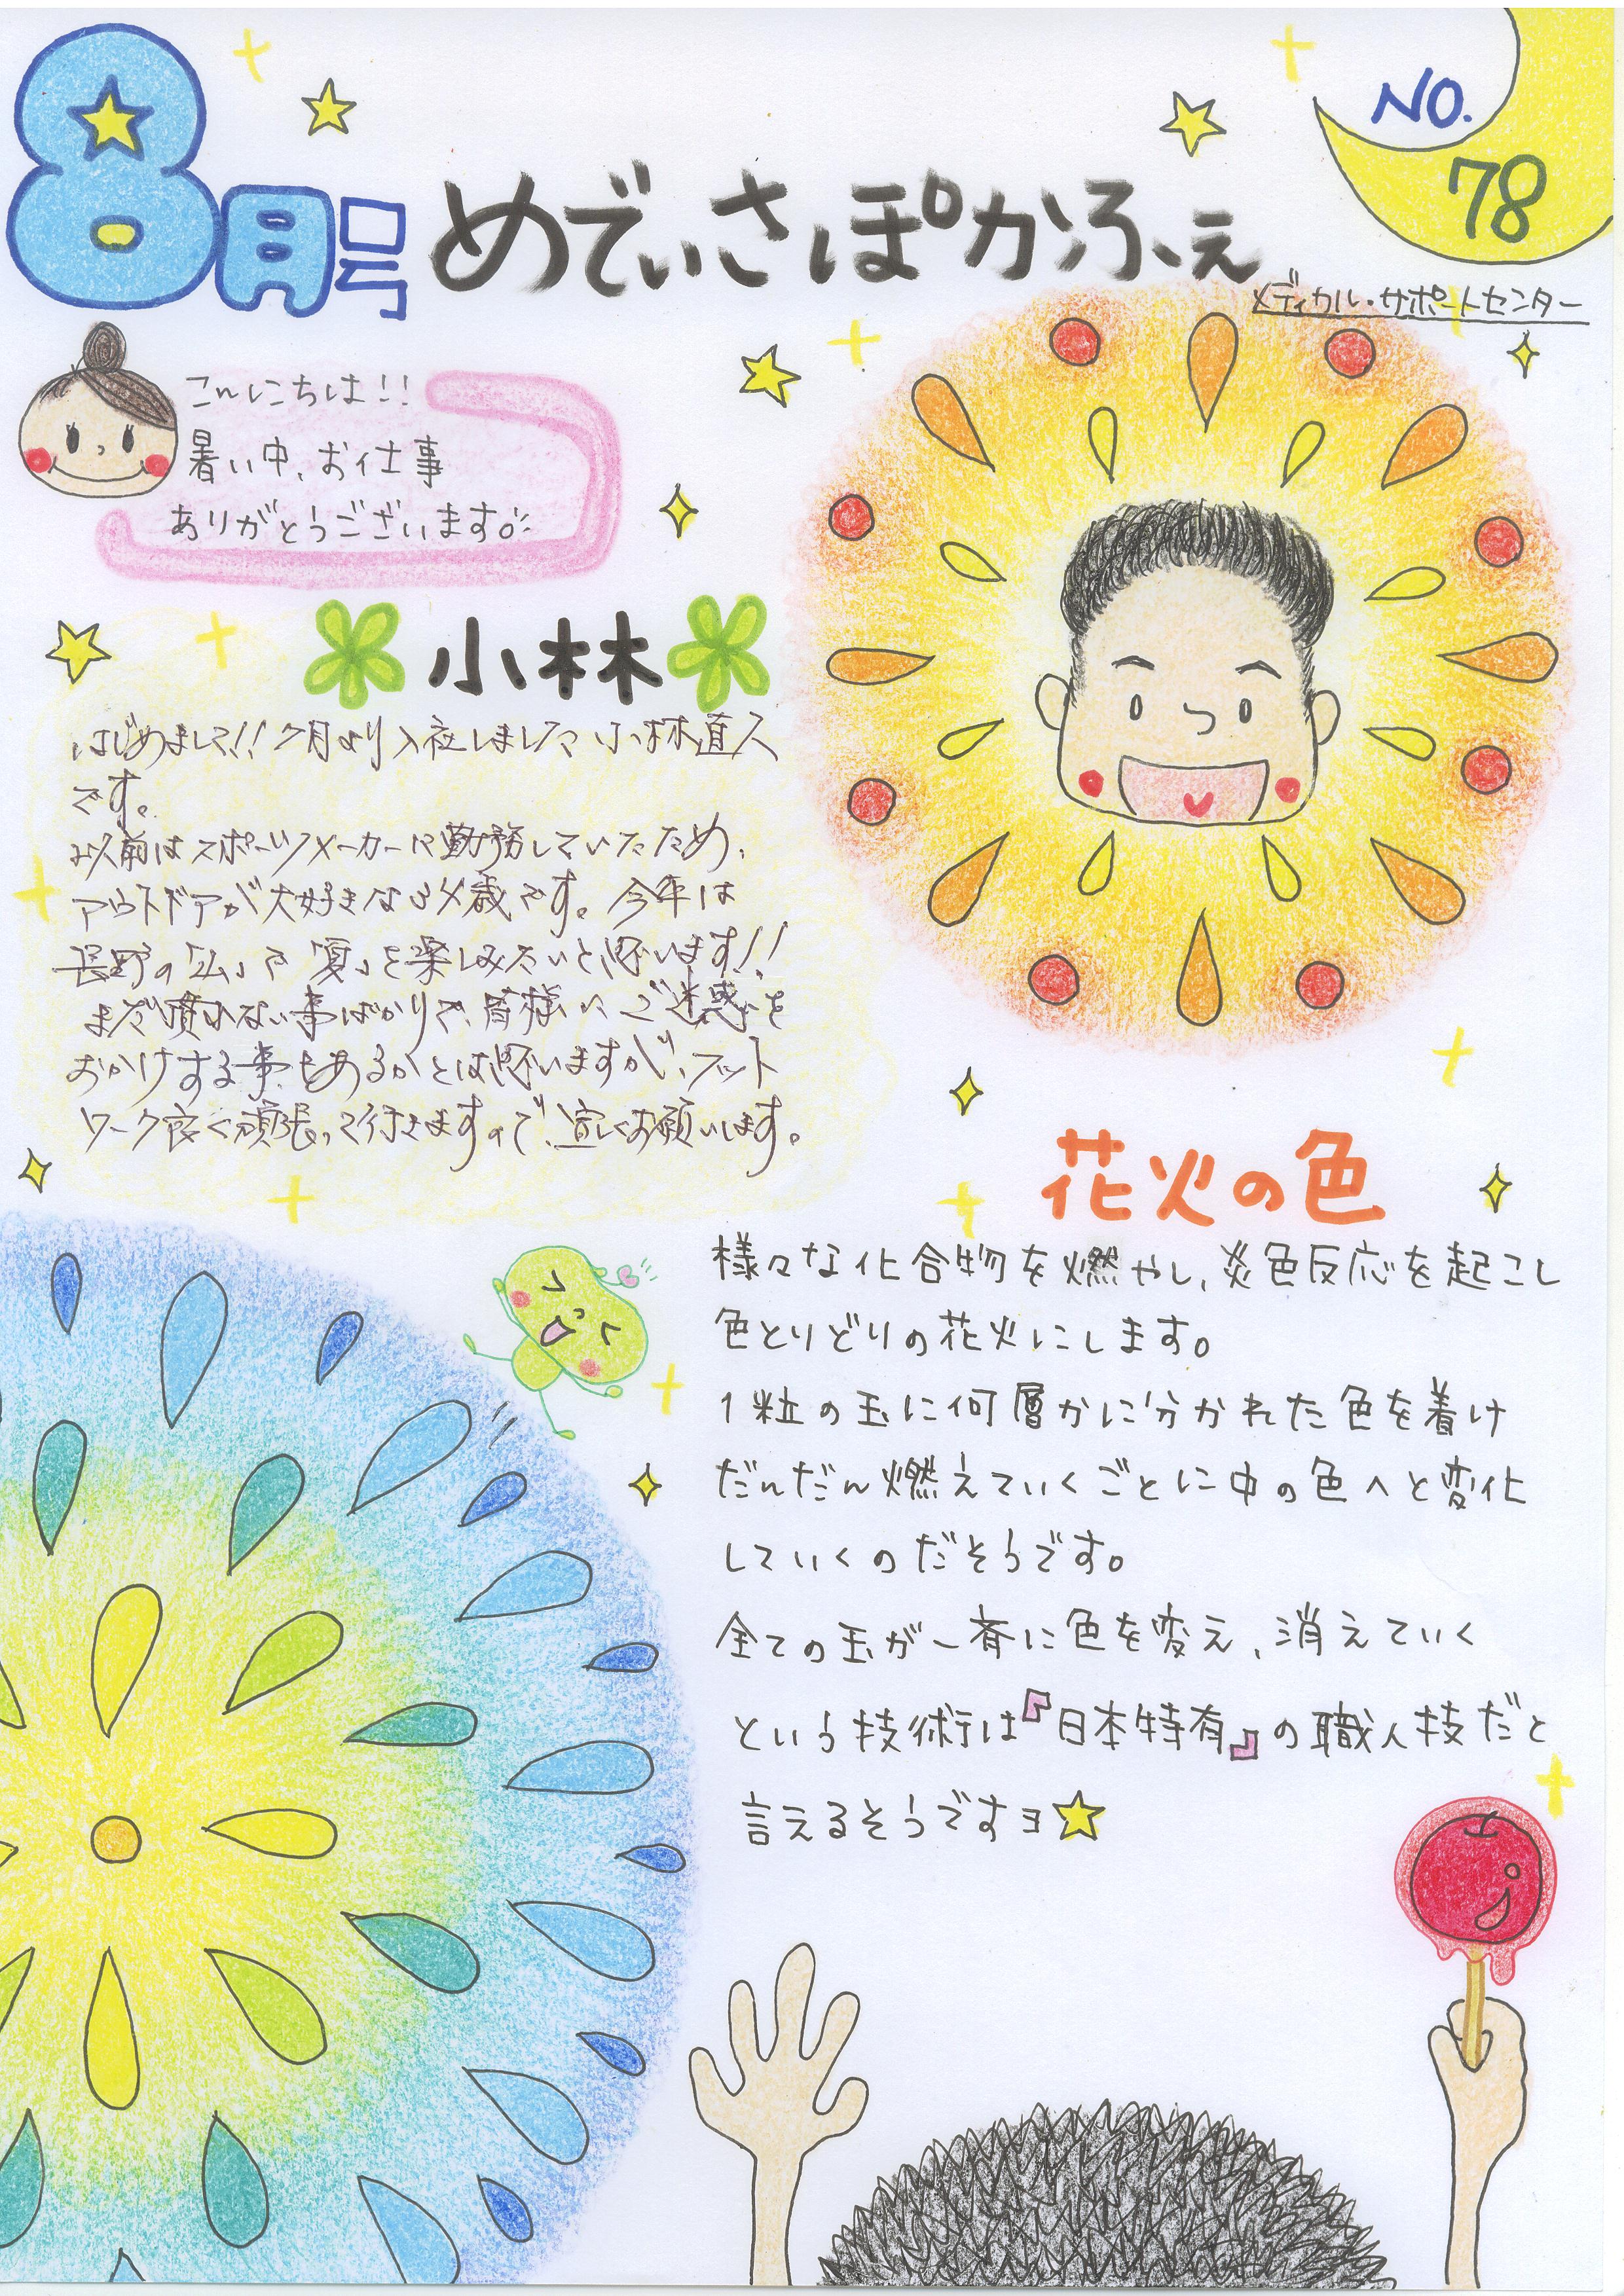 8月号
めでぃさぽかふぇ
NO.
78
メディカル・サポートセンター
こんにちは!!
暑い中、お仕事
ありがとうございます。
小林
はじめまして!! 7月より入社しました小林直人
です。
以前はスポーツメーカーに勤務していたため、
アウトドアが大好きな34歳です。今年は
長野の「山」で「夏」を楽しみたいと思います!!
まだ慣れない事ばかりで、皆様にご迷惑を
おかけする事もあるかとは思いますが、フット
ワーク良く頑張って行きますので、宜しくお願いします。
花火の色
様々な化合物を燃やし、炎色反応を起こし
色とりどりの花火にします。
1粒の玉に何層かに分かれた色を着け
だんだん燃えていくごとに中の色へと変化
していくのだそうです。
全ての玉が一斉に色を変え、消えていく
という技術は『日本特有』の職人技だと
言えるそうですヨ☆